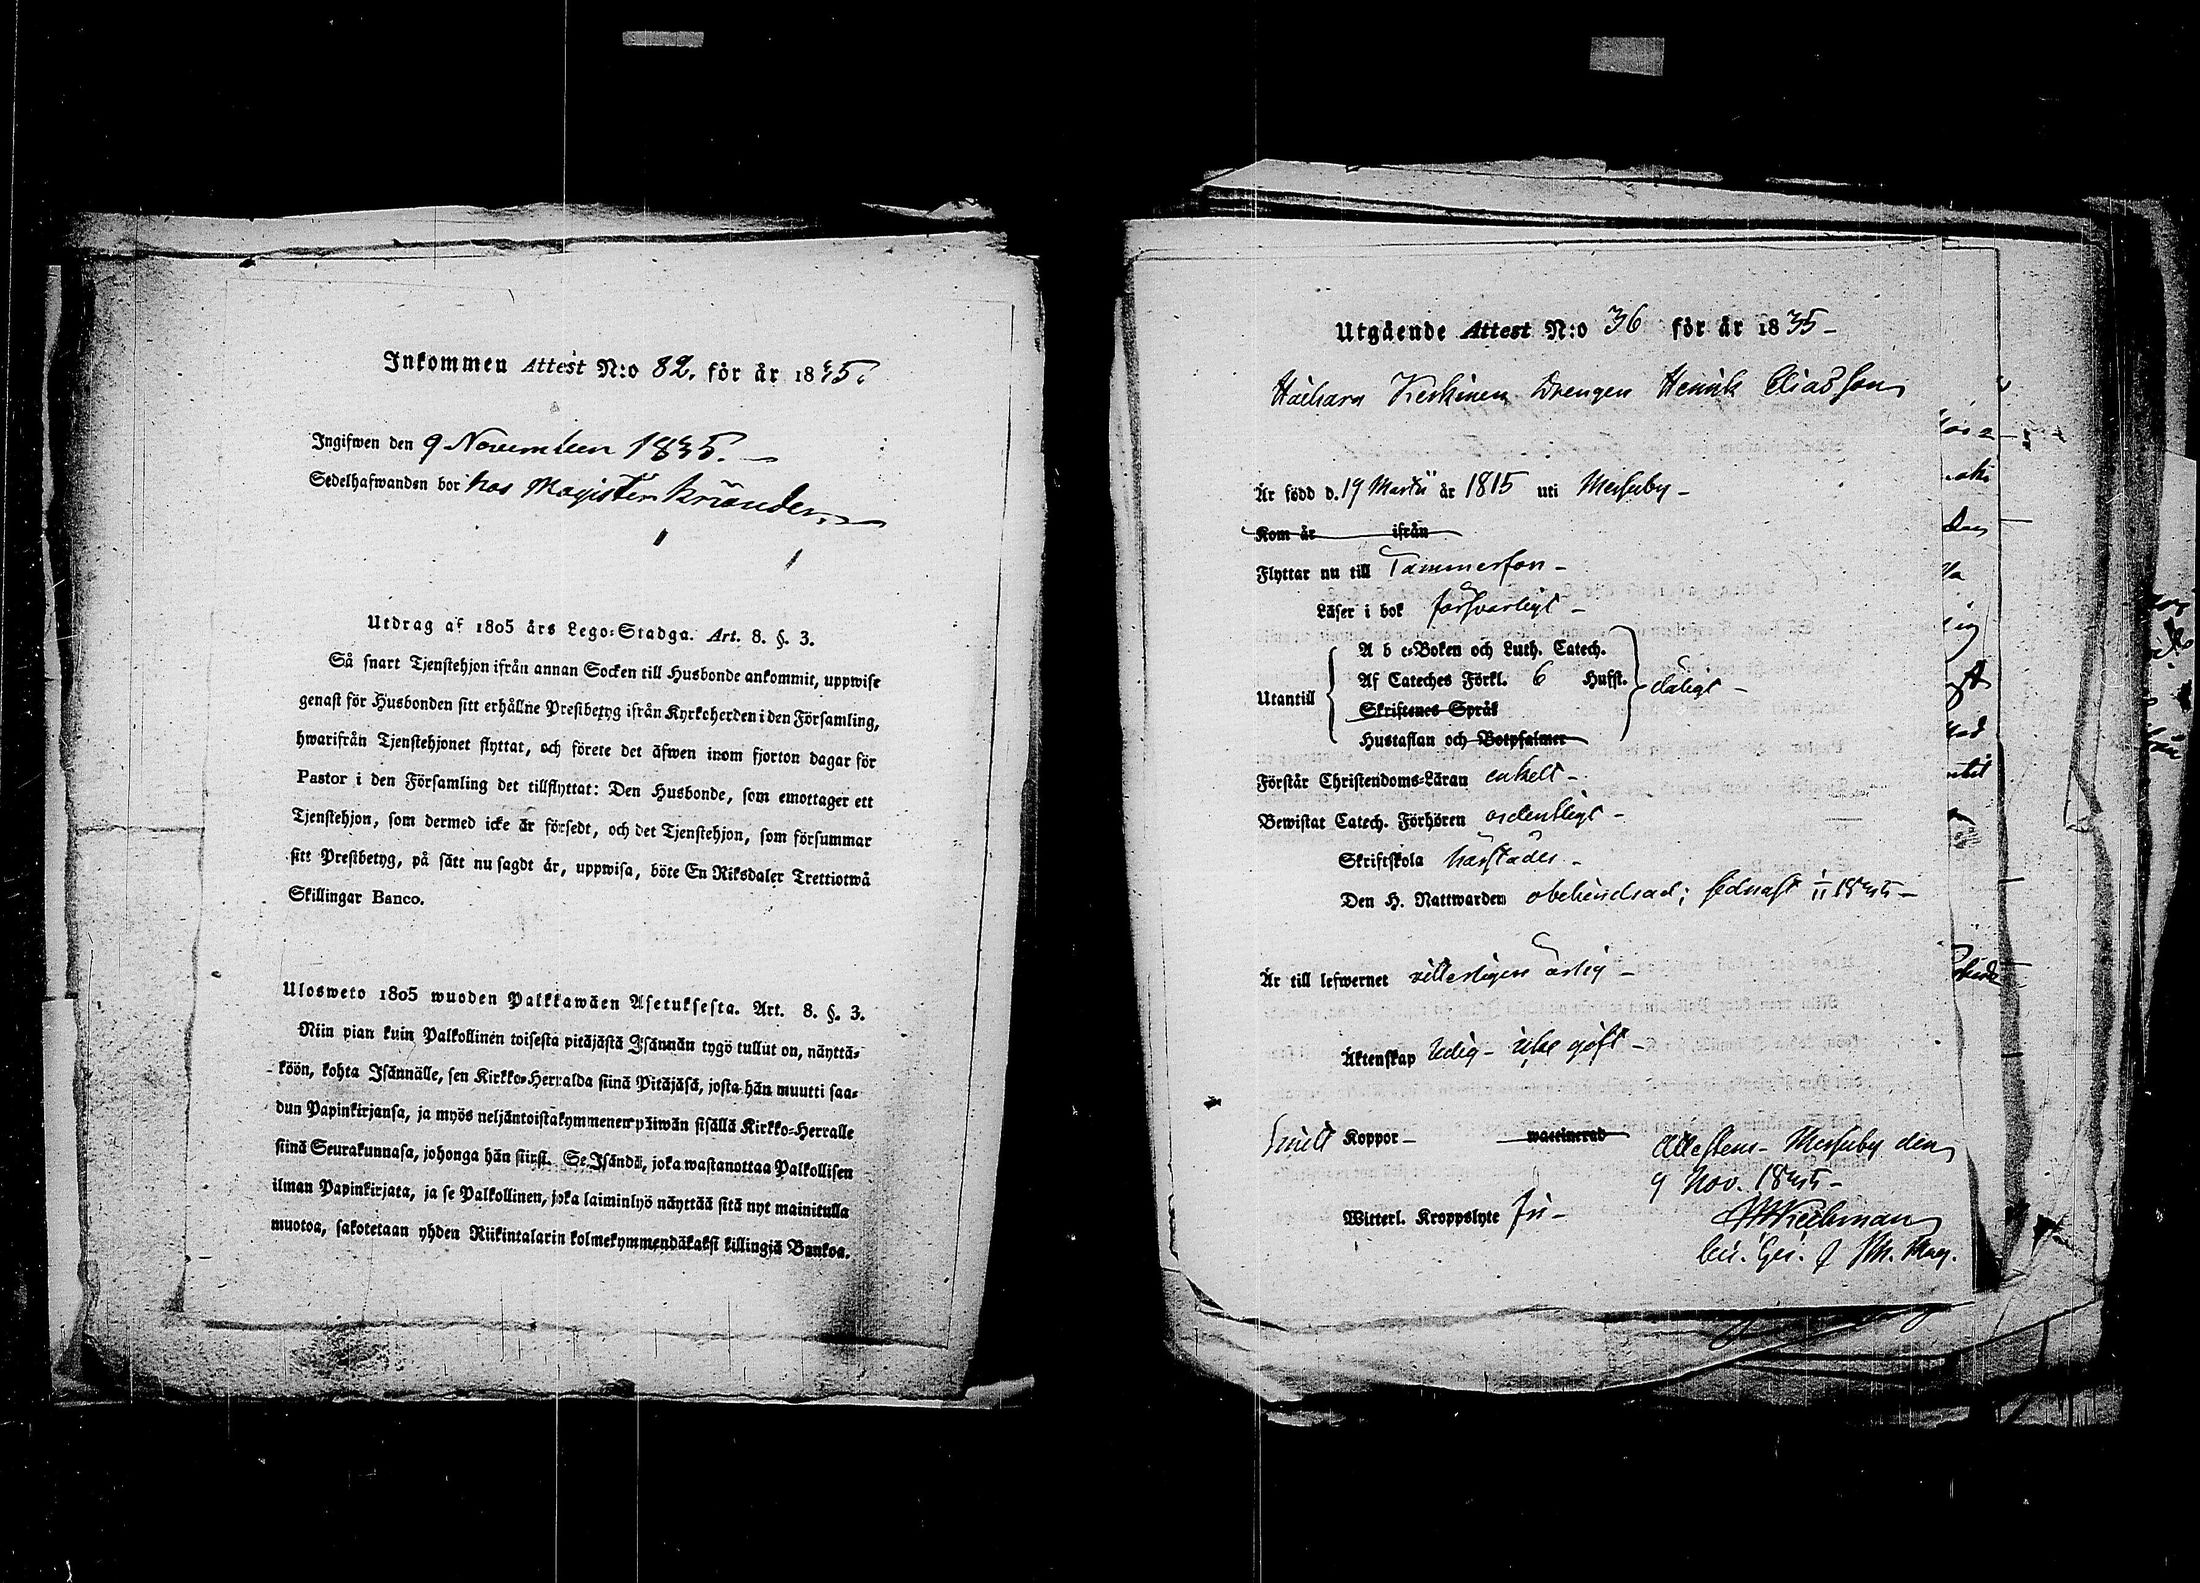 Inkommen Attest N:o 82. för år 1835.
Ingifwen den 9 November 1835.
Sedelhafwanden bor hos Magister Kriander.
Utdrag af 1805 års Lego-Stadga. Art. 8. §. 3.
Så snart Tjenstehjon ifrån annan Socken till Husbonde ankommit, uppwise
genast för Husbonden sitt erhållne Prestbetyg ifrån Kyrkoherden i den Församling,
hwarifrån Tjenstehjonet flyttat, och förete det äfwen inom fjorton dagar för
Pastor i den Församling det tillflyttat: Den Husbonde, som emottager ett
Tjenstehjon, som dermed icke är försedt, och det Tjenstehjon, som försummar
sitt Prestbetyg, på sätt nu sagdt är, uppwisa, böte En Riksdaler Trettiotwå
Skillingar Banco.
Ulosweto 1805 wuoden Palkkawäen Asetuksesta. Art. 8. §. 3.
Niin pian kuin Palkollinen toisesta pitäjästä Isännän tygö tullut on, näyttä-
köön, kohta Isännälle, sen Kirkko-Herralda siinä Pitäjäsä, josta hän muutti saa-
dun Papinkirjansa, ja myös neljäntoistakymmenen päiwän sisällä Kirkko-Herralle
siinä Seurakunnasa, johonga hän siirsi. Se Isändä, joka wastanottaa Palkollisen
ilman Papinkirjata, ja se Palkollinen, joka laiminlyö näyttää sitä nyt mainitulla
muotoa, sakotetaan yhden Riikintalarin kolmekymmendäkaksi killingiä Bankoa.
Utgående Attest N:o 36 för år 1835-
Keskinen Drengen Henrik Eliasson
Är född d. 19 Martii år 1815 uti Messuby-
Kom år ifrån
Flyttar nu till Tammerfors-
Läser i bok försvarligt-
A b c-Boken och Luth. Catech.
Af Cateches Förkl. 6 Hufst.
Utantill dåligt-
Skriftenes Språk
Hustaflan och Botpsalmer
Förstår Christendoms-Läran enkelt-
Bewistat Catech. Förhören ordentligt-
Skriftskola härstädes-
Den H. Nattwarden obehindrad; sednast 1/11 1835-
Är till lefwernet ärlig-
Äktenskap ledig- icke gift-
Koppor- waccinerad
Attesteras- Messuby den
9 Nov. 1835-
Witterl. Kroppslyte fri-